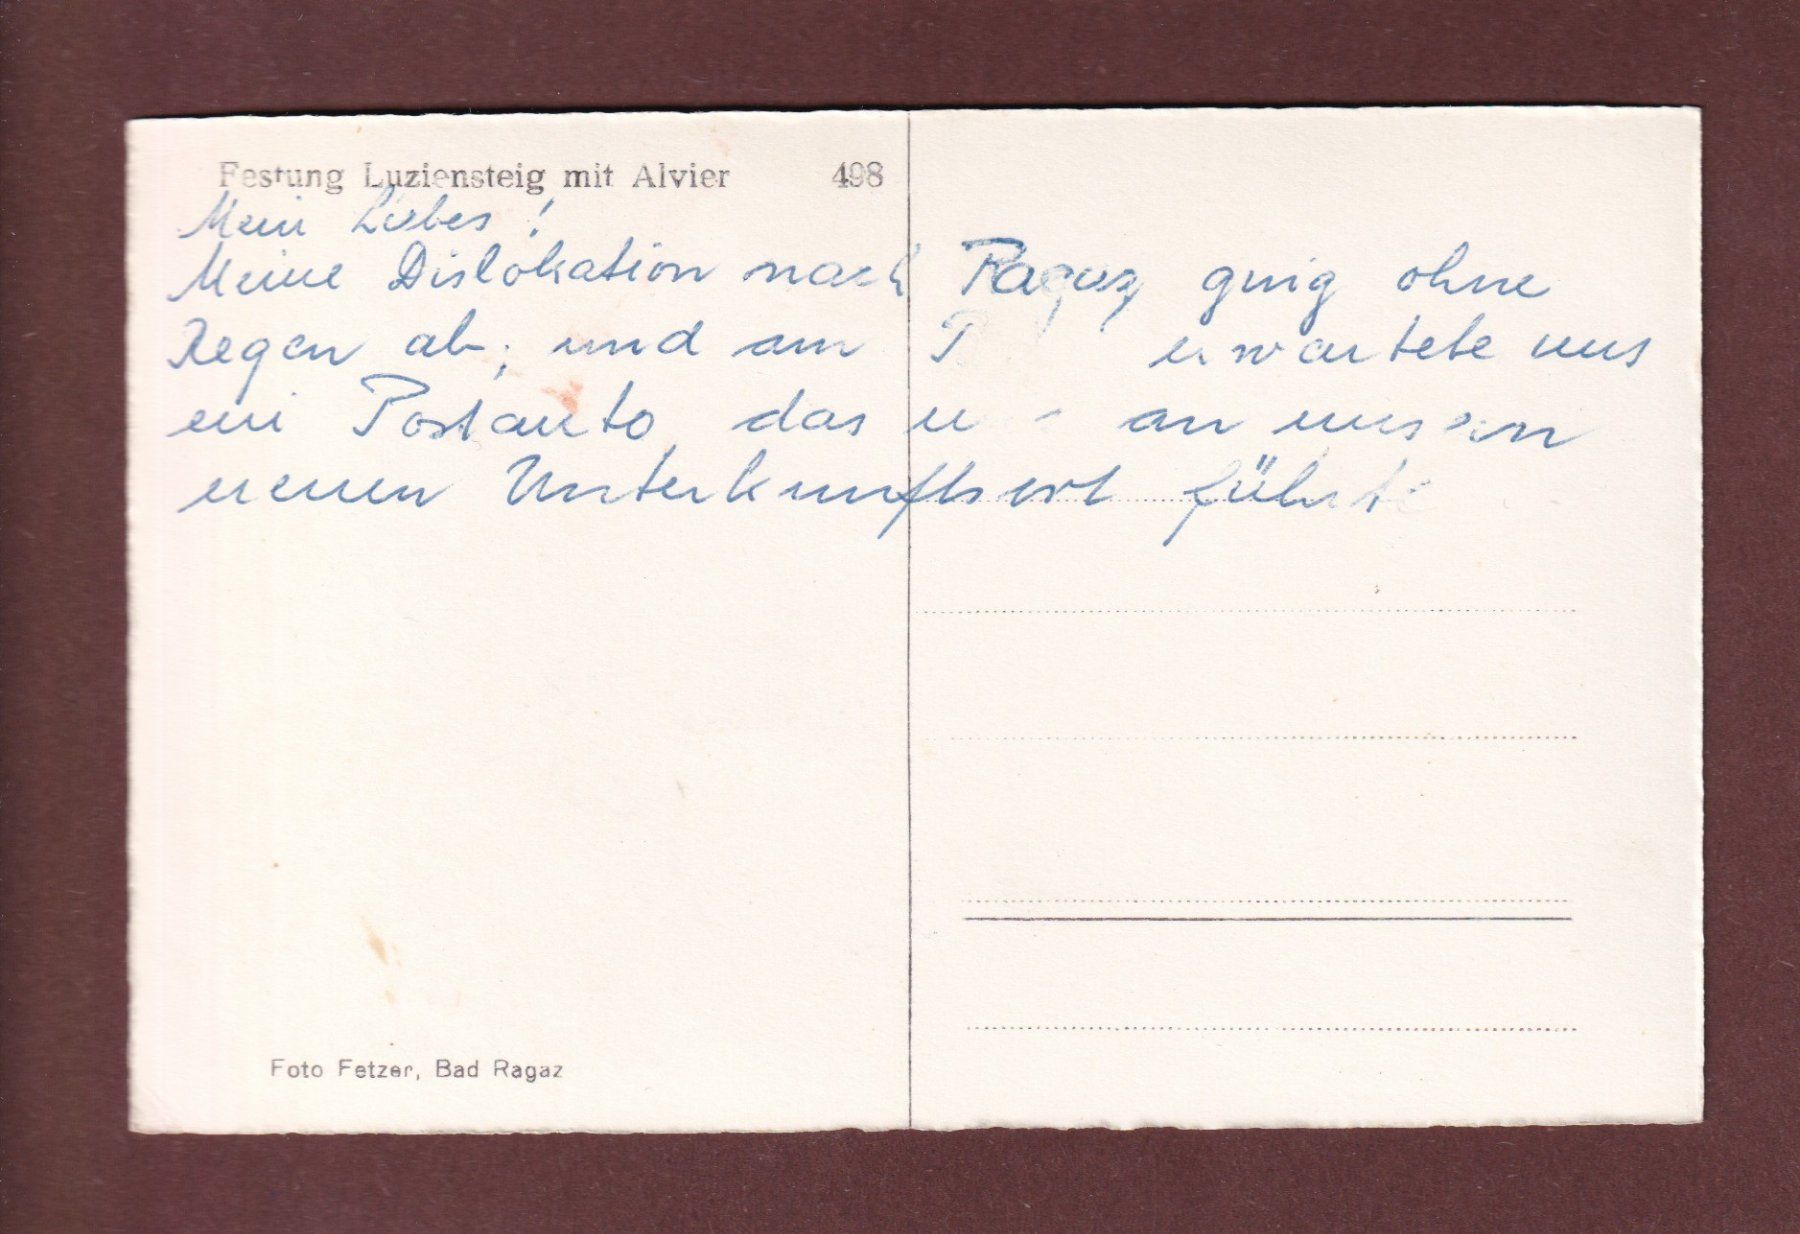 Festung Luziensteig mit Alvier 498
Mein Liebes!
Meine Dislokation nach Ragaz ging ohne
Regen ab, und am erwartete uns
ein Postauto, das an unsern
neuen Unterkunftsort führte
Foto Fetzer, Bad Ragaz